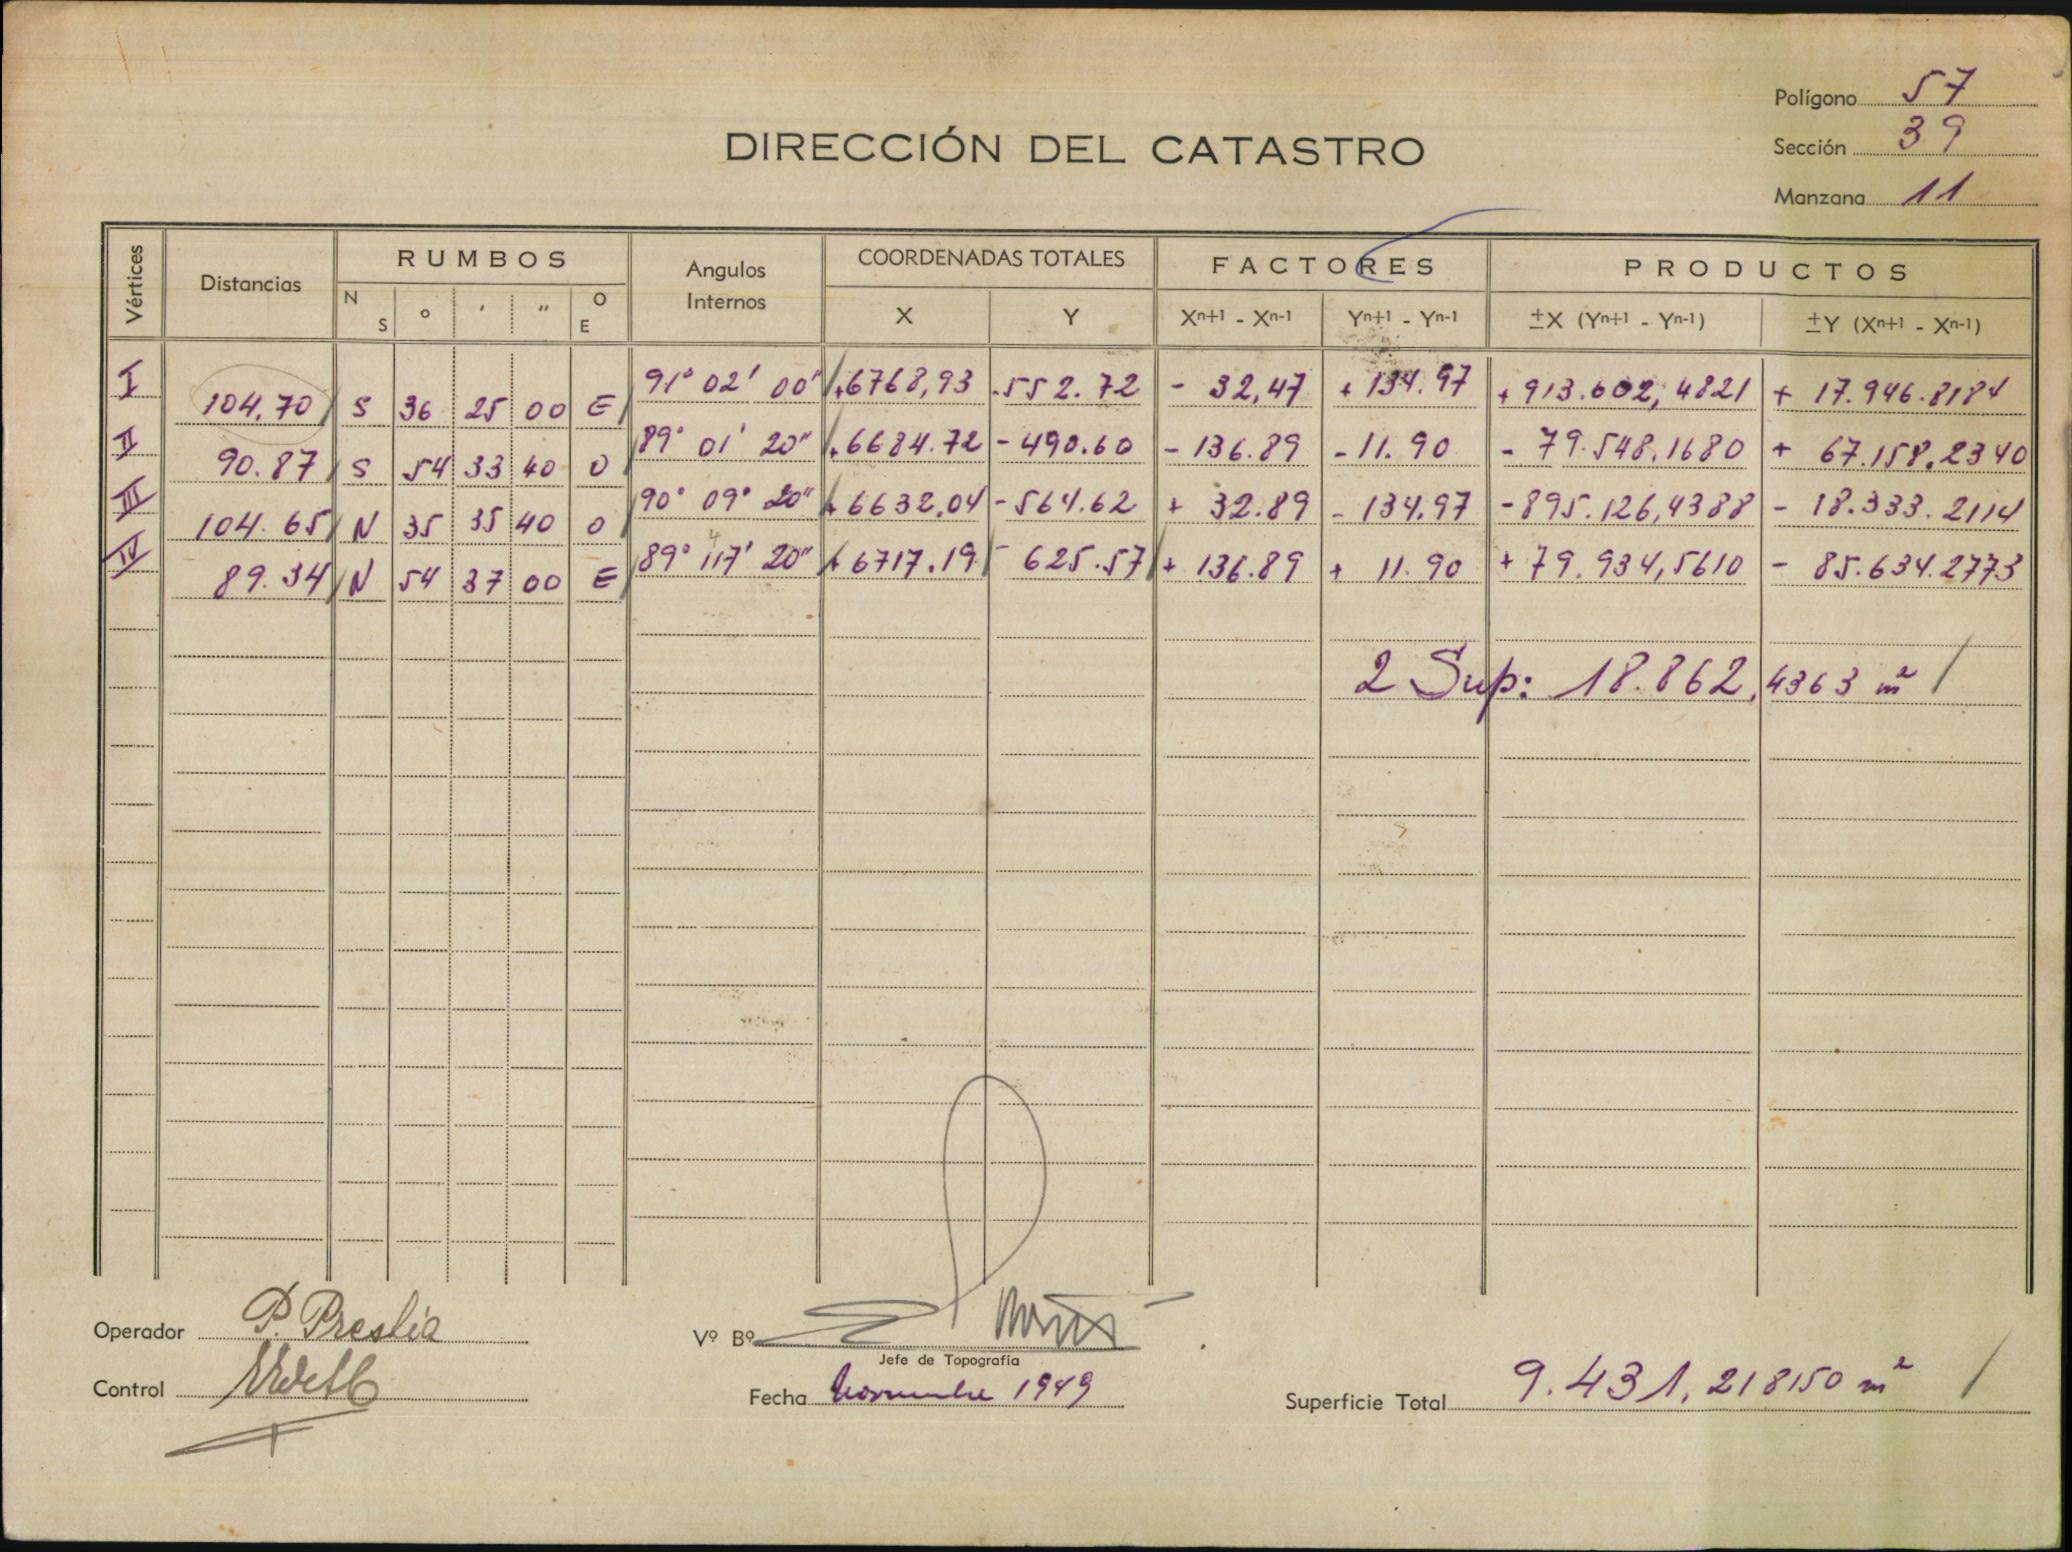 Polígono 57
Sección 39
Manzana 11
DIRECCIÓN DEL CATASTRO
Vértices Distancias RUMBOS Angulos Internos COORDENADAS TOTALES FACTORES PRODUCTOS
N S ° ′ ″ O E X Y Xn+1 - Xn-1 Yn+1 - Yn-1 ±X (Yn+1 - Yn-1) ±Y (Xn+1 - Xn-1)
I 91° 02' 00" +6768,93 -552.72 - 32,47 + 134.97 + 913.602,4821 + 17.946.8184
104,70 S 36 25 00 E
II 89° 01' 20" +6684.72 - 490.60 - 136.89 - 11.90 - 79.548.1680 + 67.158.2340
90.87 S 54 33 40 O
III 90° 09° 20" + 6632.04 - 564.62 + 32.89 - 134.97 - 895.126,4388 - 18.333.2114
104.65 N 35 35 40 O
IV 89° 47' 20" + 6717.19 - 625.57 + 136.89 + 11.90 + 79.934,5610 - 85.634.2773
89.34 N 54 37 00 E
2 Sup: 18.862,4363 m²
Operador P. Preslia
Vº Bº
Jefe de Topografía
Control
Fecha Noviembre 1949
Superficie Total 9.431,218150 m²